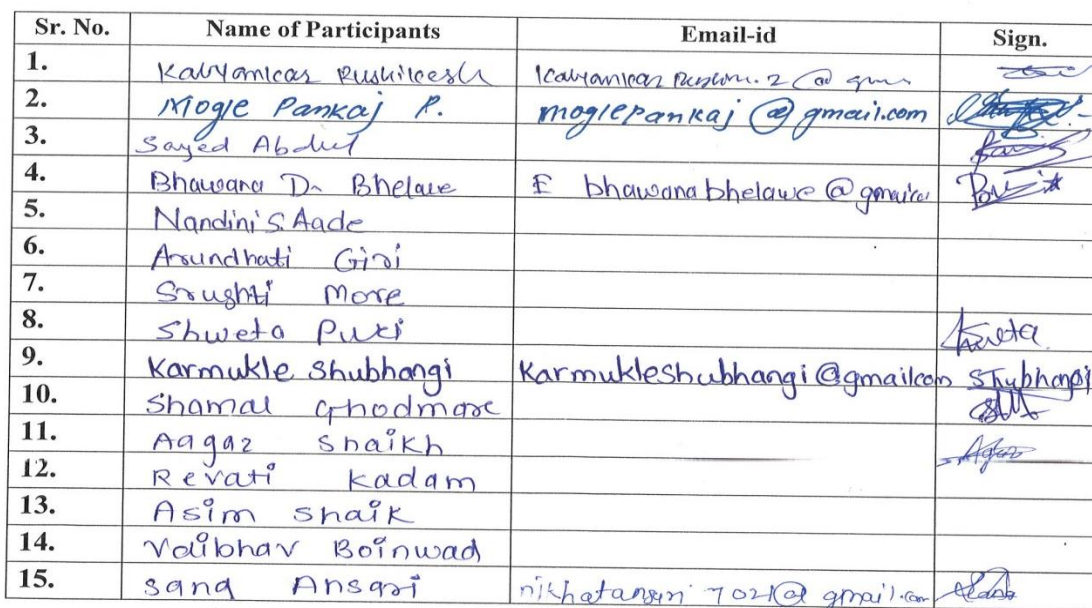 Sr. No. Name of Participants Email-id Sign.
1. Kalyamkar Rushikesh
2. Mogle Pankaj P. moglepankaj@gmail.com
3. Sayed Abdul
4. Bhawana D. Bhelawe bhawanabhelawe@gmail.com
5. Nandini S. Aade
6. Arundhati Giri
7. Srushti More
8. Shweta Puri Shweta
9. Karmukle Shubhangi Karmukleshubhangi@gmailcom Shubhangi
10. Shamal Ghodmare
11. Aagaz Shaikh
12. Revati Kadam
13. Asim Shaik
14. Vaibhav Boinwad
15. Sana Ansari